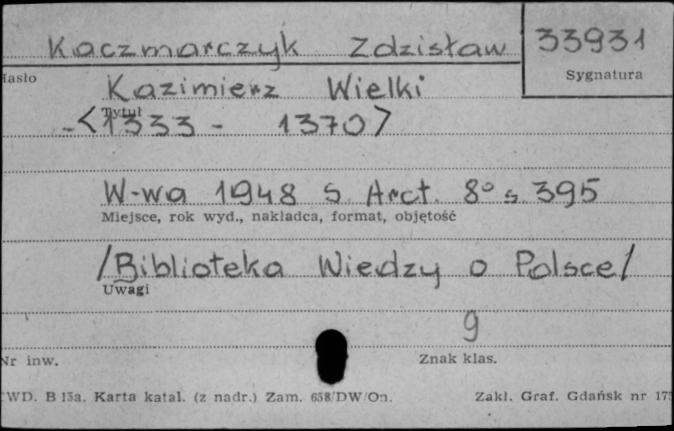 Kaczmarczyk Zdzisław 33931
Hasło Sygnatura
Kazimierz Wielki
Tytuł
-<1333 - 1370>
W-wa 1948 S. Arct. 8° s. 395
Miejsce, rok wyd., nakładca, format, objętość
/Biblioteka Wiedzy o Polsce/
Uwagi
9
Nr inw. Znak klas.
WD. B 15a. Karta katal. (z nadr.) Zam. 658/DW/On. Zakł. Graf. Gdańsk nr 175